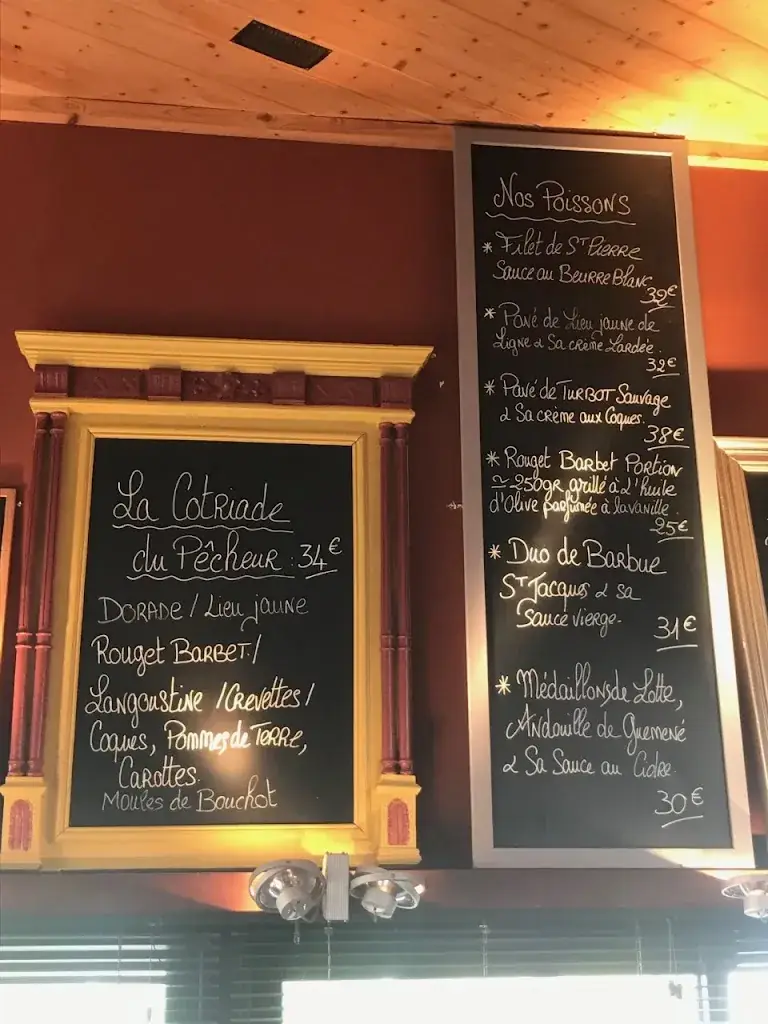 La Cotriade
du Pêcheur : 34€
DORADE / Lieu jaune
Rouget BARBET /
Langoustine / Crevettes /
Coques, Pommes de TERRE,
Carottes.
Moules de Bouchot
Nos Poissons
* Filet de ST PIERRE
Sauce au Beurre Blanc
39€
* Pavé de Lieu jaune de
Ligne & Sa crème Lardée.
32€
* Pavé de TURBOT Sauvage
& Sa crème aux Coques.
38€
* Rouget Barbet PORTION
≃ 250gr grillé à l'huile
d'Olive parfumée à la vanille.
25€
* Duo de Barbue
ST Jacques & sa
Sauce vierge.
31€
* Médaillons de Lotte,
Andouille de Guemené
& Sa Sauce au Cidre.
30€